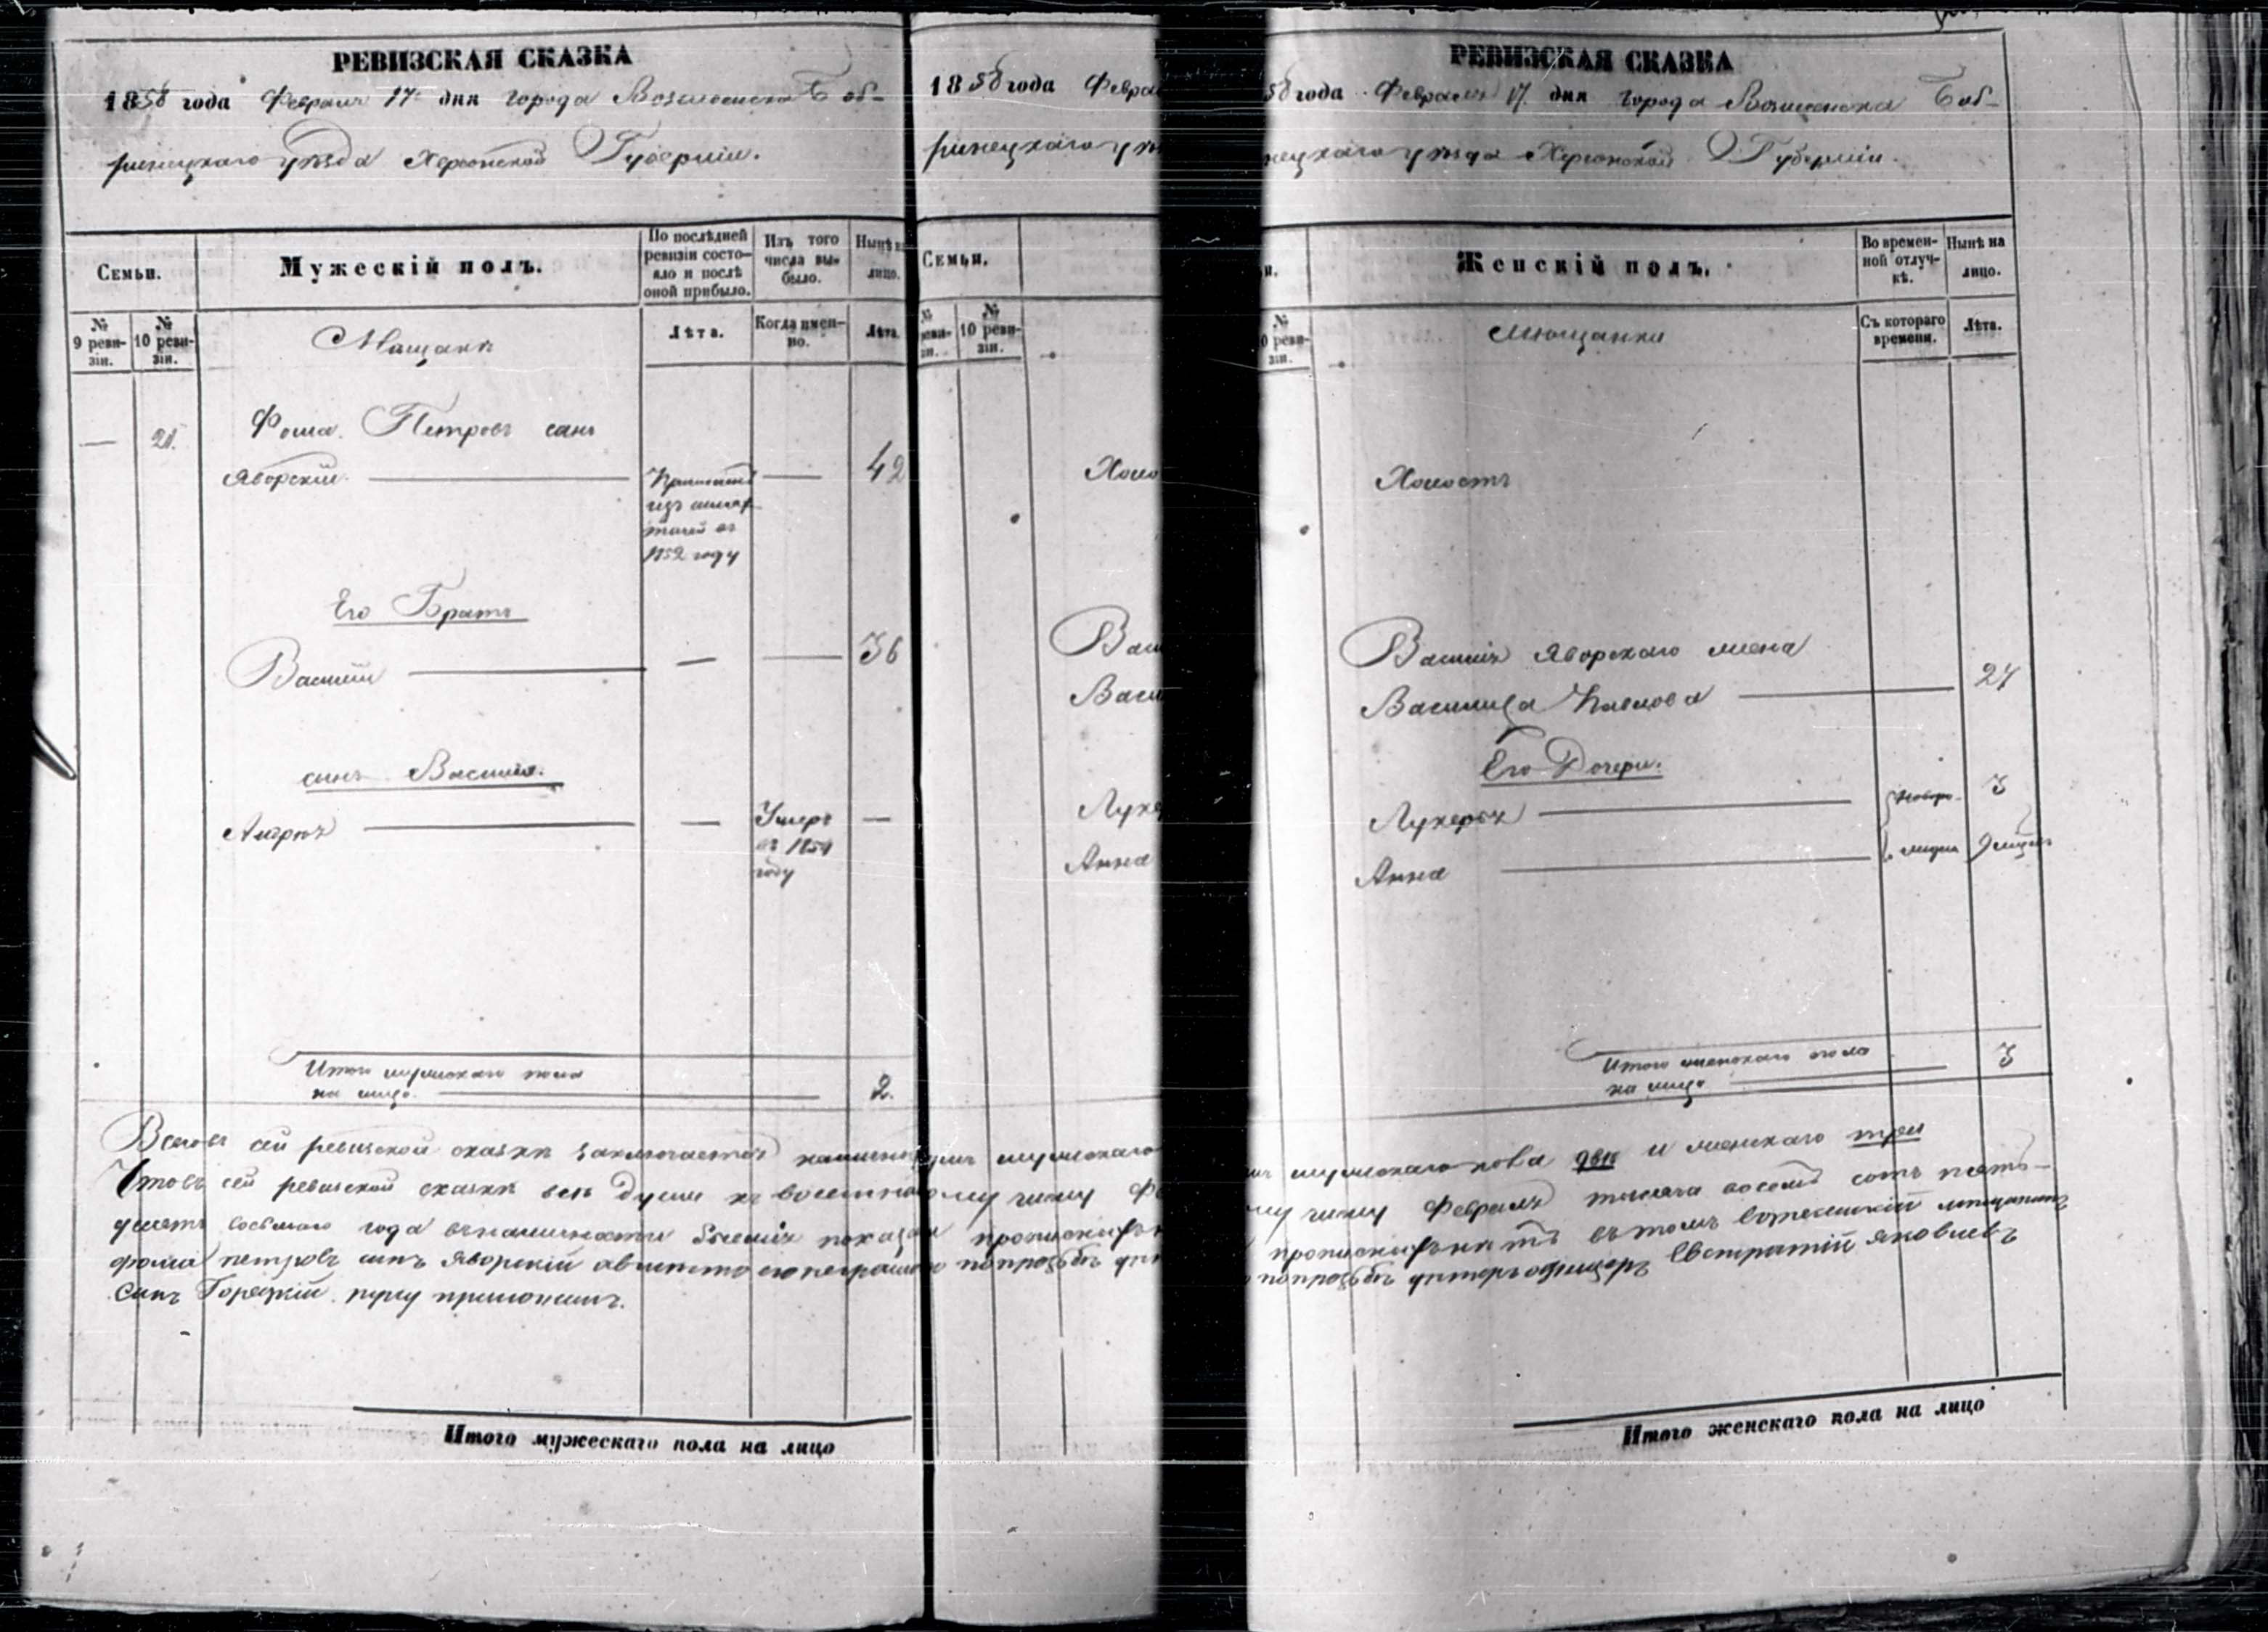 РЕВИЗСКАЯ СКАЗКА
1858 года Февраля 17 дня города Вознесенска Боб-
ринецкаго уѣзда Херсонской Губерніи.
Семьи.
Мужескій полъ.
По послѣдней ревизіи состо-яло и послѣ оной прибыло.
Изъ того числа вы-было.
Нынѣ на лицо.
№ 9 реви-зіи.
№ 10 реви-зіи.
Мѣщане
Лѣта.
Когда имен-но.
Лѣта.
— 21. Фома Петровъ сынъ
Яворскій — 42
1852 году
Его Братъ
Василій — — — 36
сынъ Василія.
Андрей — — Умеръ —
въ 1854
году
Итого мужскаго пола
на лицо. 2.
1858 года Февра
ринецкаго уѣз
Семьи.
№ 10 реви-зіи.
Холо
Васи
Васи
Луке
Анна
РЕВИЗСКАЯ СКАЗКА
58 года Февраля 17 дня города Вознесенска Боб-
нецкаго уѣзда Херсонской Губерніи.
Женскій полъ.
Во времен-ной отлуч-кѣ.
Нынѣ на лицо.
№ 10 реви-зіи.
Мѣщанки
Съ котораго времени.
Лѣта.
Холостъ
Василія Яворскаго жена
Василиса Павлова — 27
Его Дочери.
Лукерья — 3
Анна — 9 мѣсяц
Итого женскаго пола
на лицо 3
Всего въ сей ревизской сказкѣ заключается налицо душъ мужскаго пола двѣ и женскаго три
Что въ сей ревизской сказкѣ всѣ души къ восемнадцатому числу Февраля тысяча восемь сотъ пять-
десятъ восьмаго года въ наличности
Фома Петровъ сынъ Яворскій а вмѣсто его неграмотнаго по прозьбѣ унтеръ офицеръ Евстратій Яковлевъ
сынъ Горецкій руку приложилъ.
Итого мужескаго пола на лицо
Итого женскаго пола на лицо